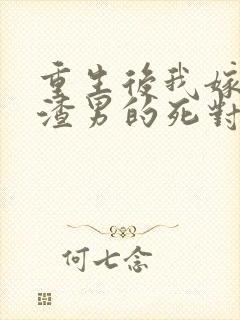 重生後我嫁
渣男的死對
何七念